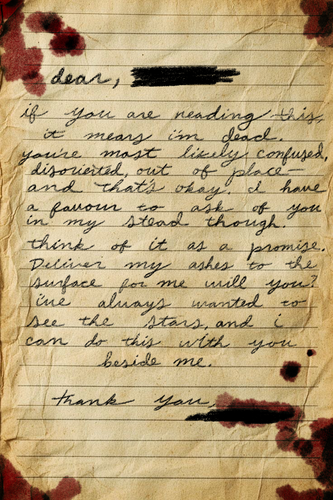 dear,
if you are reading this,
it means i'm dead.
you're most likely confused,
disoriented, out of place—
and that's okay. I have
a favour to ask of you
in my stead though.
think of it as a promise.
Deliver my ashes to the
surface for me will you?
i've always wanted to
see the stars, and i
can do this with you
beside me.
thank you,